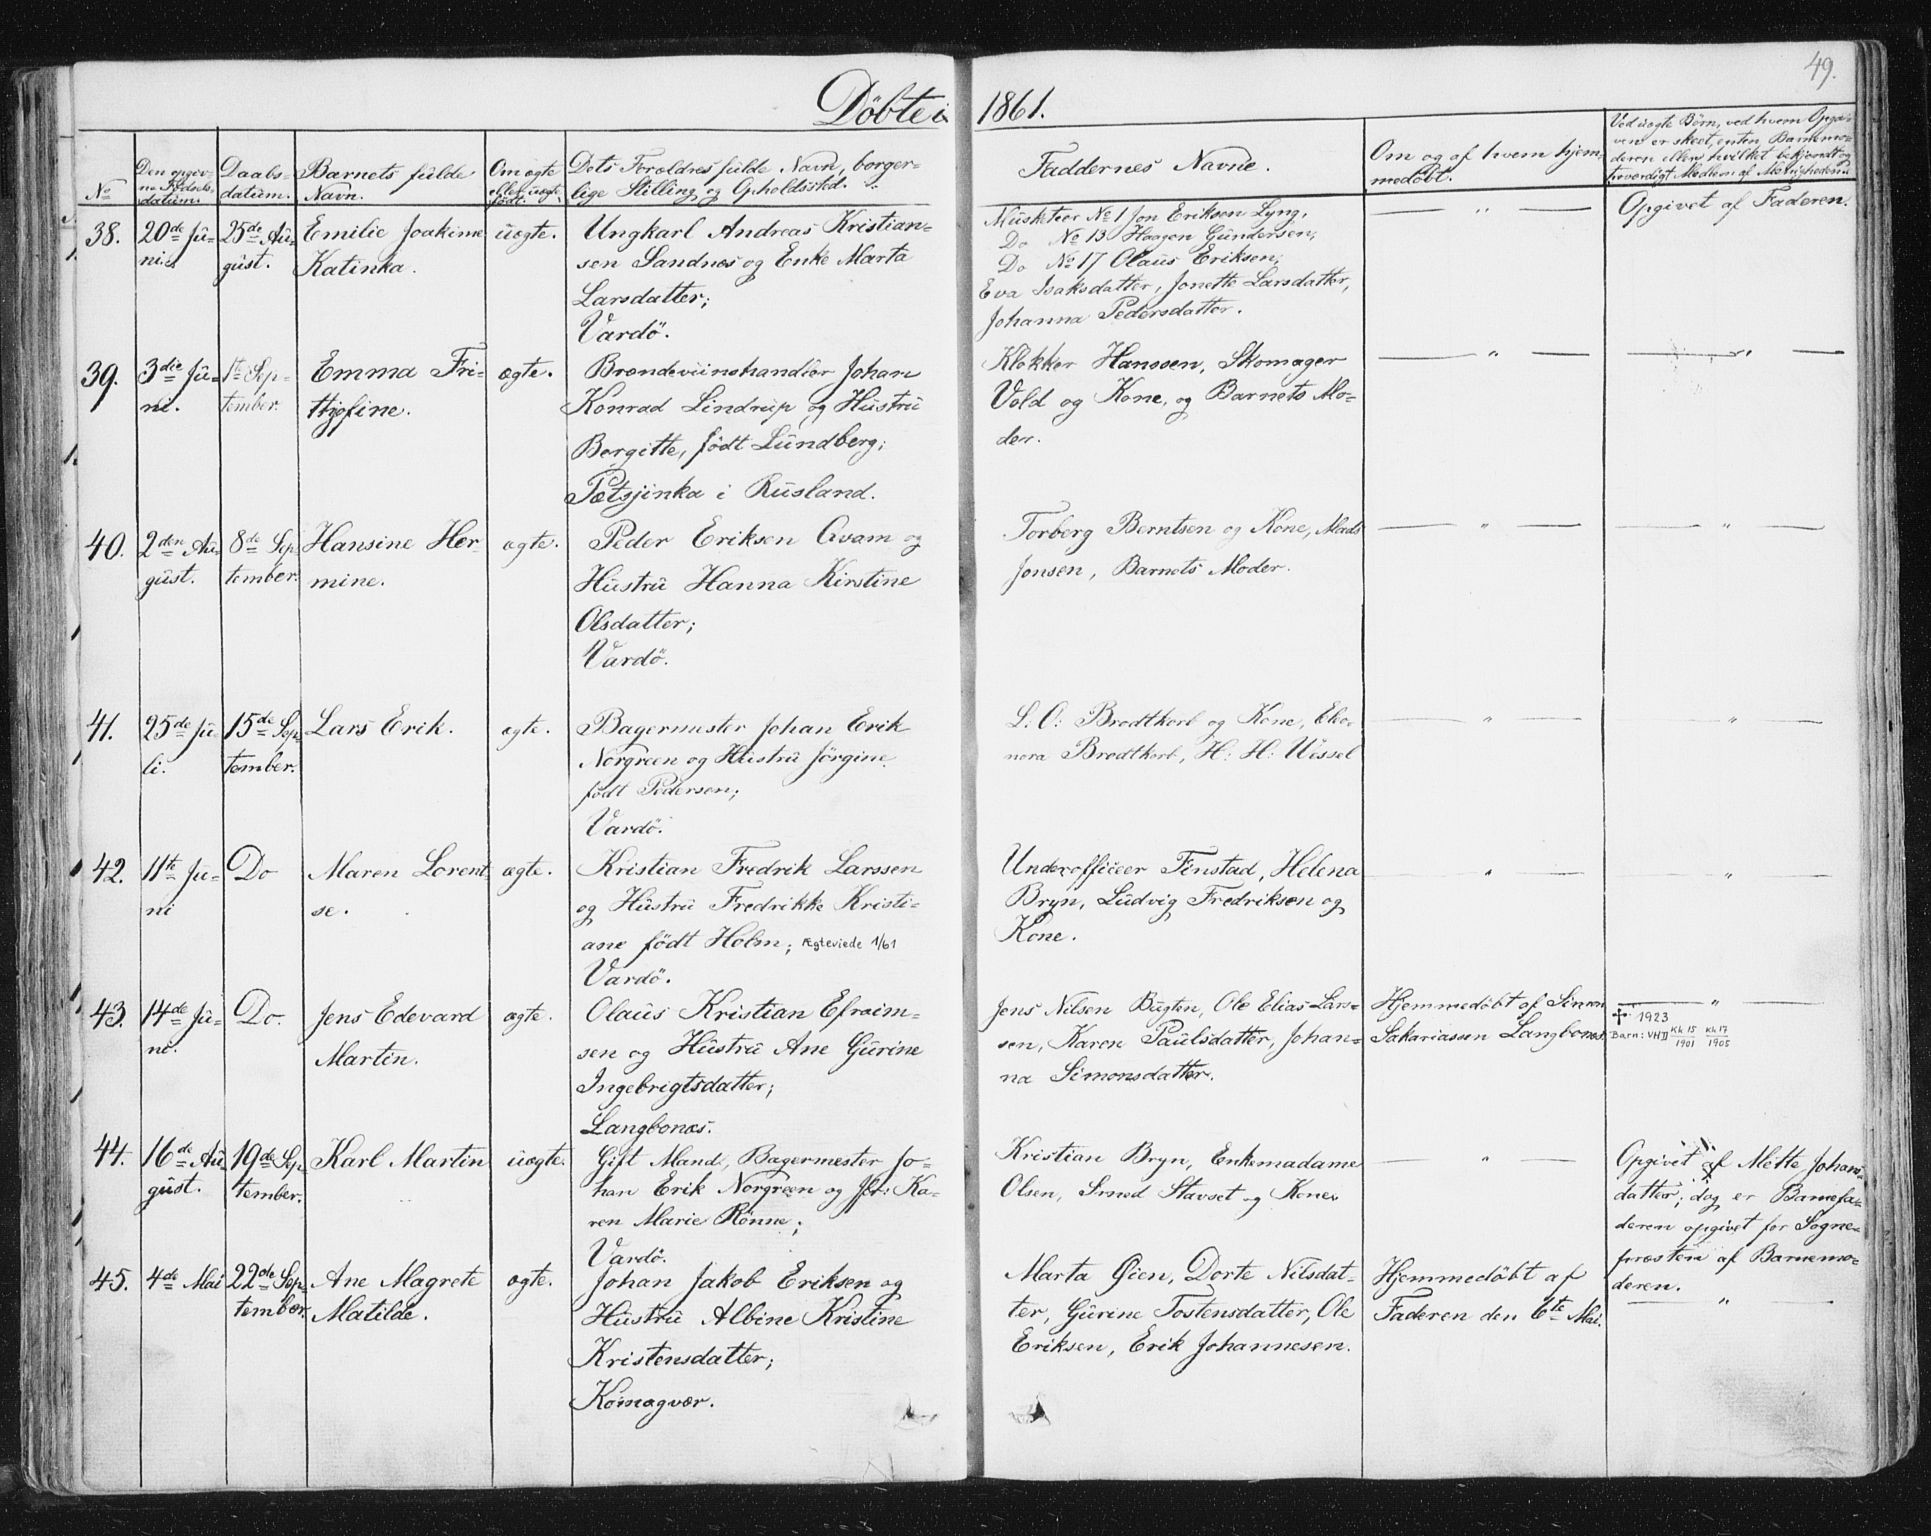 49.
Döbte i 1861.
No
Den opgiv-
ne Födsels-
datum.
Daabs-
datum.
Barnets fulde
Navn.
Om ægte
eller uægte
født.
Dets Foreldres fulde Navn, borger-
lige Stilling og Opholdssted.
Faddernes Navne.
Om og af hvem hjem-
medøbt.
Ved uægte Børn, ved hvem Opgi-
ven er skeet, enten Barnemo-
deren eller hvilket bekjendt og
troværdigt Medlem af Menigheden.
38.
20de Ju-
ni.
25de Au-
gust.
Emilie Joakime
Katinka.
uægte.
Ungkarl Andreas Kristian-
sen Sandnes og Enke Marta
Larsdatter;
Vardö.
Musketeer No 1 Jon Eriksen Lyng,
Do No 13 Haagen Gundersen,
Do No 17 Olaus Eriksen,
Eva Isaksdatter, Jonette Larsdatter,
Johanna Pedersdatter.
— " —
Opgivet af Faderen.
39.
3die Ju-
ni.
1te Sep-
tember.
Emma Fri-
thjofine.
ægte.
Brændeviinshandler Johan
Konrad Lindrup og Hustru
Bergitte, født Lundberg;
Petsjinka i Rusland.
Klokker Hanssen, Skomager
Vold og Kone, og Barnets Mo-
der.
— " —
— " —
40.
2den Au-
gust.
8de Sep-
tember.
Hansine Her-
mine.
ægte.
Peder Eriksen Qvam og
Hustru Hanna Kirstine
Olsdatter;
Vardö.
Torberg Berntsen og Kone, Mads
Jonsen, Barnets Moder.
— " —
— " —
41.
25de Ju-
li.
15de Sep-
tember.
Lars Erik.
ægte.
Bagermester Johan Erik
Norgreen og Hustru Jörgine
født Pedersen;
Vardö.
L. O: Brodtkorb og Kone, Eleo-
nora Brodtkorb, H: H: Wessel
— " —
— " —
42.
11te Ju-
ni
Do
Maren Lorent-
se.
ægte.
Kristian Fredrik Larssen
og Hustru Fredrikke Kristi-
ane født Holm; Ægteviede 1/61
Vardö.
Underofficeer Finstad, Helena
Bryn, Ludvig Fredriksen og
Kone.
— " —
— " —
43.
14de Ju-
ni.
Do.
Jens Edevard
Martin.
ægte.
Olaus Kristian Efraim-
sen og Hustru Ane Gurine
Ingebrigtsdatter;
Langbunes.
Jens Nilsen Bugten, Ole Elias Lars-
sen, Karen Paulsdatter, Johan-
na Simonsdatter.
Hjemmedøbt af Simon
Sakariassen Langbunes.
— " —
✢ 1923
Barn: VHD Kk 15 1901 Kk 17 1905
44.
16de Au-
gust.
19de Sep-
tember.
Karl Martin
uægte.
Gift Mand, Bagermester Jo-
han Erik Norgreen og Jfr: Ka-
ren Marie Rönne;
Vardö.
Kristian Bryn, Enkemadame
Olsen, Smed Stavset og Kone.
— " —
Opgivet af Mette Johans-
datter; dog er Barnefa-
deren opgivet for Sogne-
presten af Barnemo-
deren.
45.
4de Mai
22de Sep-
tember.
Ane Magrete
Matilde.
ægte.
Johan Jakob Eriksen og
Hustru Albine Kristine
Kristensdatter;
Komagvær.
Marta Øien, Dorte Nilsdat-
ter, Gurine Tostensdatter, Ole
Eriksen, Erik Johannesen.
Hjemmedøbt af
Faderen den 6te Mai.
— " —